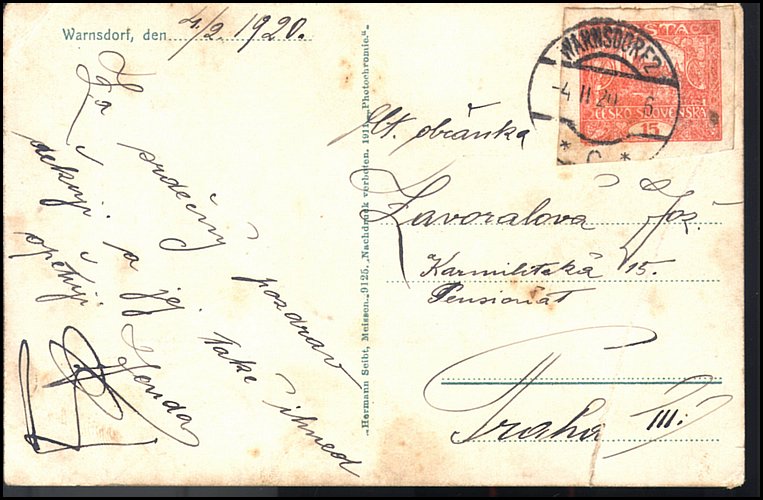 Warnsdorf, den 4/2 1920.
Za srdečný pozdrav
děkuji a jej také ihned
i opětuji.
Jenda
„Hermann Seibt, Meissen. 9125. „Nachdruck verboten. 1911. „Photochromie."
POŠTA
ČESKO-SLOVENSKÁ
15
WARNSDORF 2
-4 II 20 6
* C *
Ct. občanka
Zavoralová Jos.
Karmelitská 15.
Pensionát
Praha III.